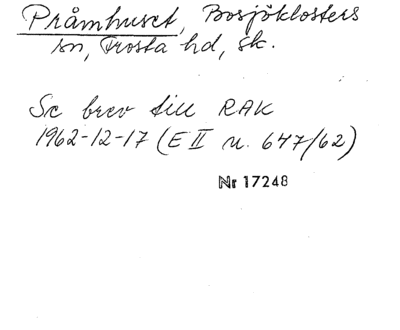 Pråmhuset, Bosjöklosters
sn, Frosta hd, Sk.
Se brev till RAK
1962-12-17 (E II u. 647/62)
Nr 17248